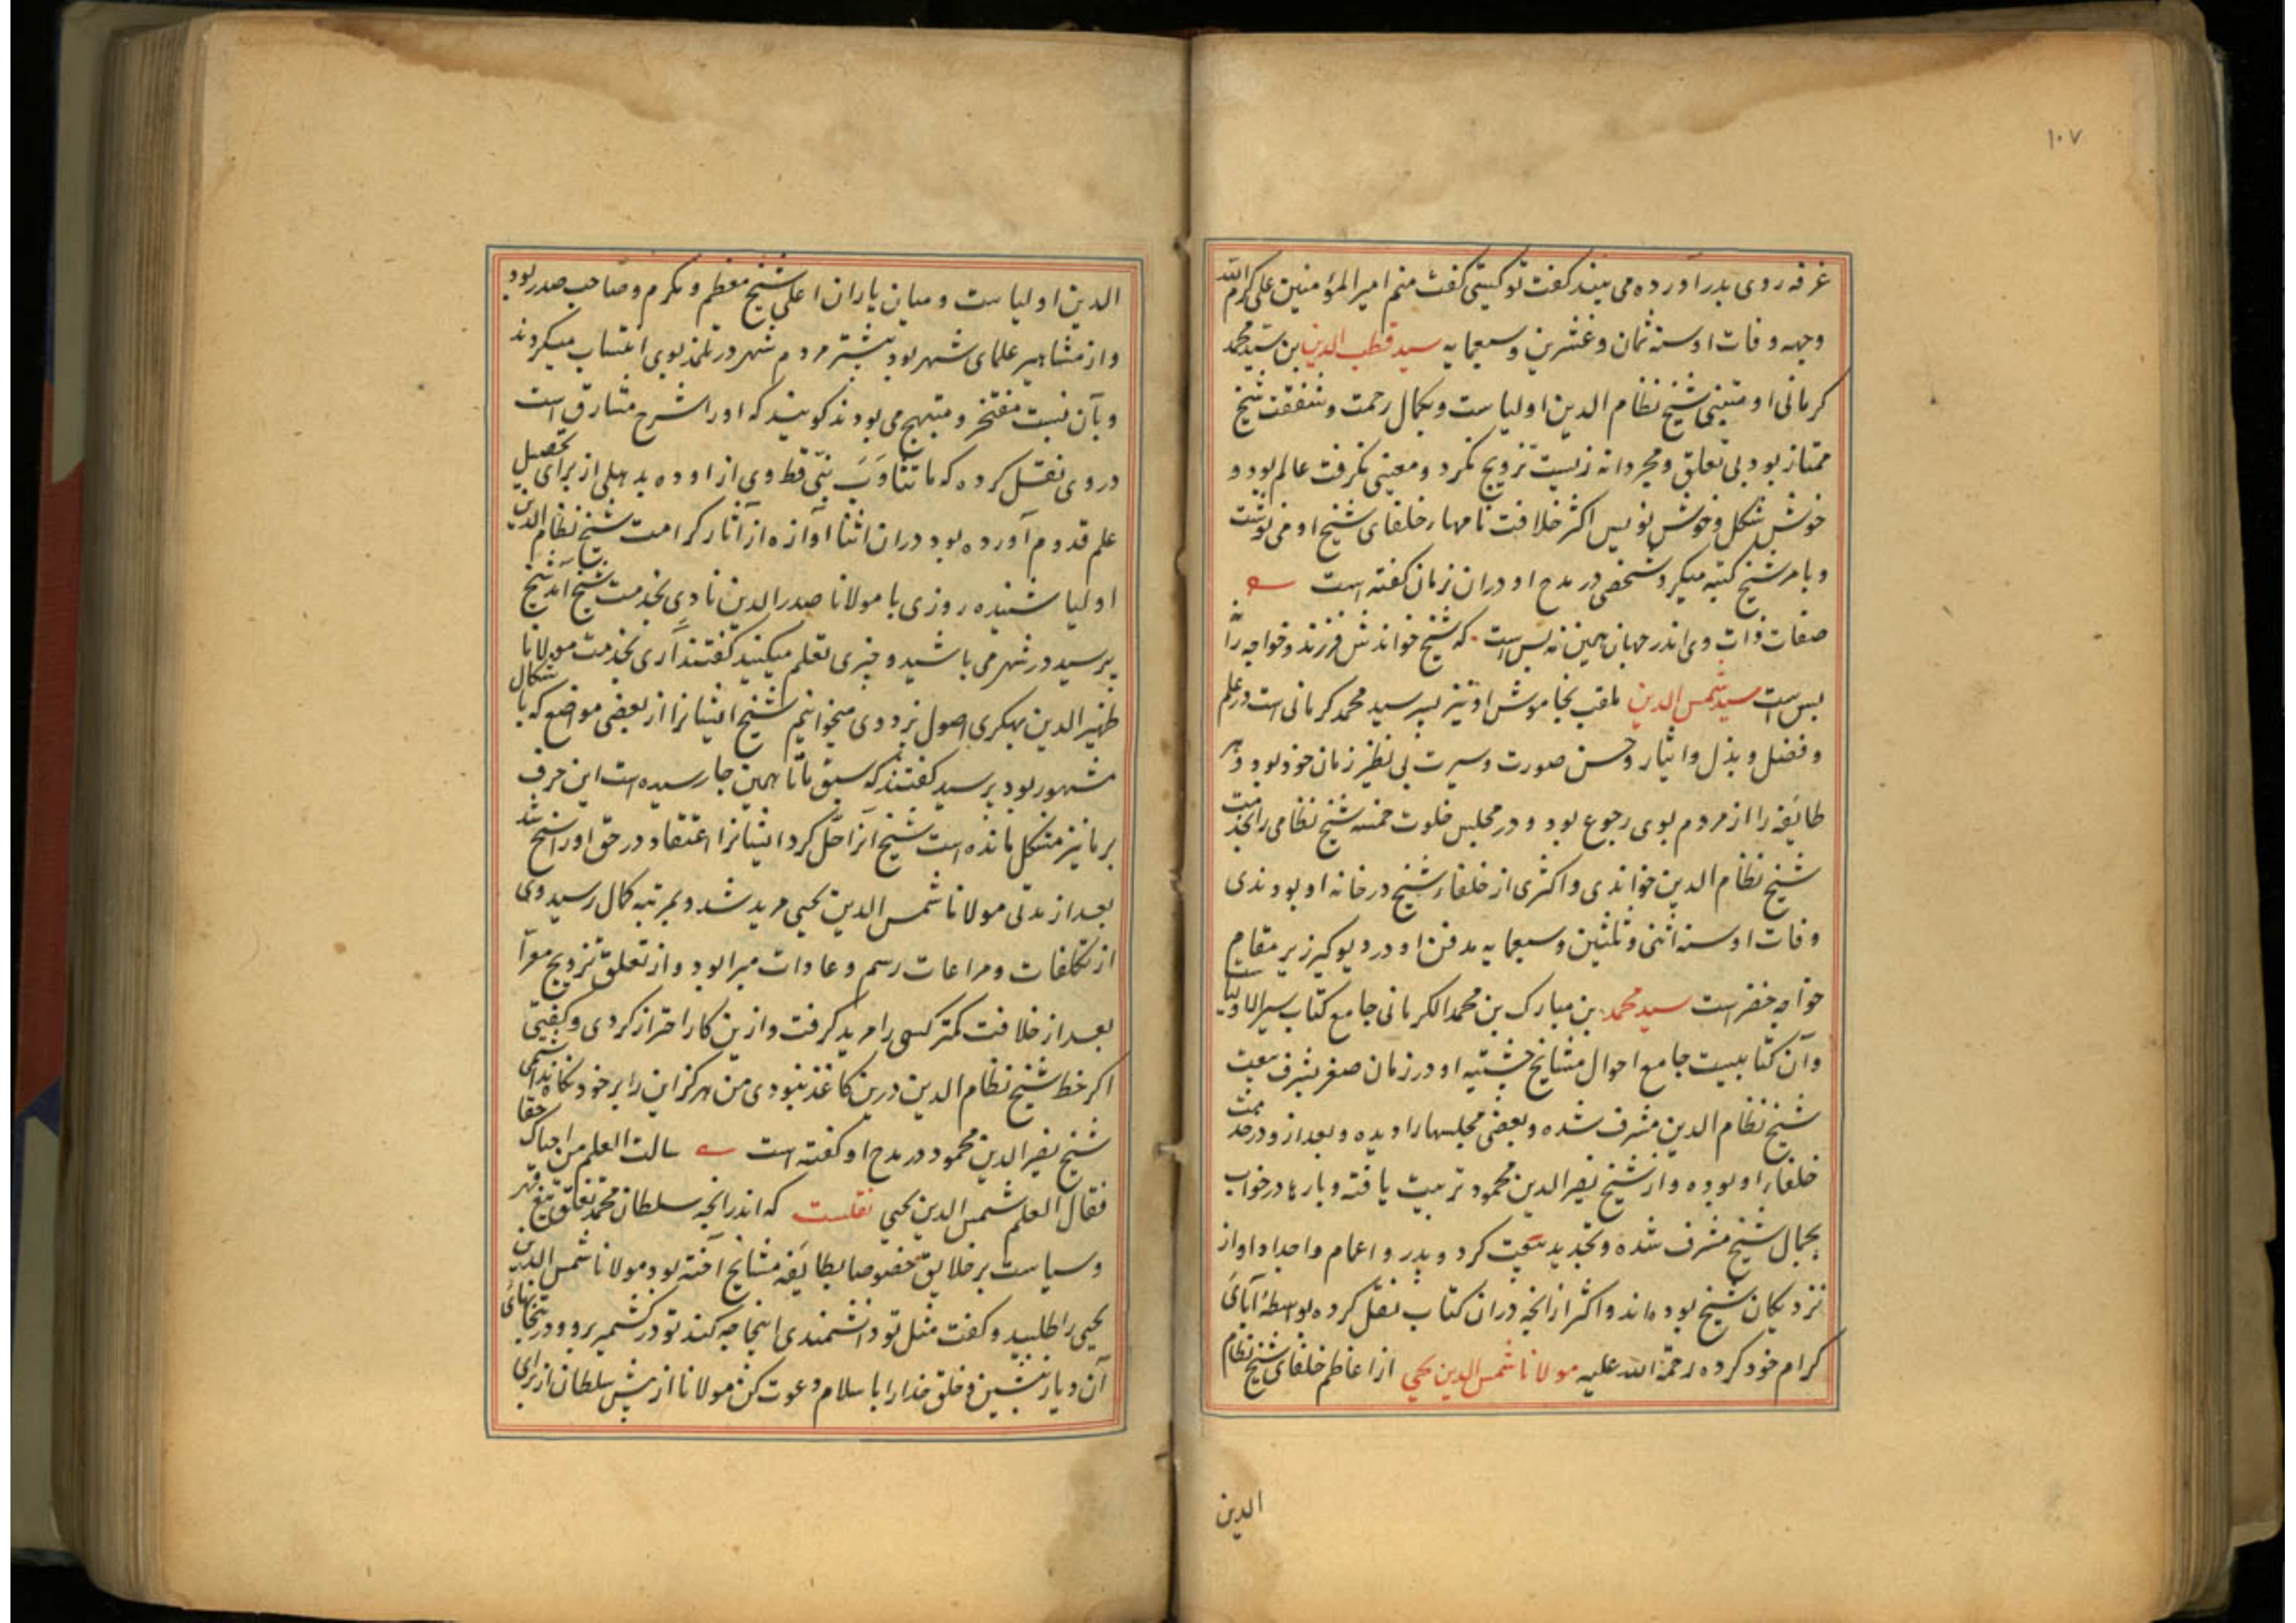 ۱۰۷
غرفه روی بدر آورده می بیند گفت تو کیستی گفت منم امیر المؤمنین علی کرم الله
وجهه وفات او سنه ثمان و عشرین و سبعمایه سید قطب الدین بن سید محمد
کرمانی او متبنی شیخ نظام الدین اولیاست و بکمال رحمت و شفقت شیخ
ممتاز بود بی تعلق و مجردانه زیست تزویج نکرد و معینی نگرفت عالم بود و
خوش شکل و خوش نویس اکثر خلافت نامهاء خلفای شیخ او می نوشت
و بامر شیخ کتبه میکرد شخصی در مدح او دران زمان گفته است
صفات ذات وی اندر جهان همین نه بس است که شیخ خواندش فرزند و خواجه را
بس است سید شمس الدین ملقب بخاموش او نیز پسر سید محمد کرمانی است در علم
و فضل و بذل و ایثار و حسن صورت و سیرت بی نظیر زمان خود بود و هر
طایفه را از مردم بوی رجوع بود و در مجلس خلوت خمسه شیخ نظامی را بخدمت
شیخ نظام الدین خواندی و اکثری از خلفاء شیخ در خانه او بودندی
وفات او سنه اثنی و ثلثین و سبعمایه مدفن او در دیوکیر زیر مقام
خواجه خضر است سید محمد بن مبارک بن محمد الکرمانی جامع کتاب سیر الاولیا
و آن کتابیست جامع احوال مشایخ چشتیه او در زمان صغر بشرف بیعت
شیخ نظام الدین مشرف شده و بعضی مجلسها را دیده و بعد ازو در خدمت
خلفاء او بوده و از شیخ نصیر الدین محمود تربیت یافته و بارها در خواب
بجمال شیخ مشرف شده و تجدید بیعت کرد و پدر و اعمام و اجداد او از
نزدیکان شیخ بوده اند و اکثر از انچه دران کتاب نقل کرده بواسطه آبای
کرام خود کرده رحمة الله علیه مولانا شمس الدین یحیی از اعاظم خلفای شیخ نظام
الدین
الدین اولیاست و میان یاران اعلی شیخ معظم و مکرم و صاحب صدر بود
و از مشاهیر علمای شهر بود بیشتر مردم شهر در تلمذ بوی انتساب میکردند
و بآن نسبت مفتخر و مبتهج می بودند گویند که او را شرح مشارق است
در وی نقل کرده که ما تثاوب نبی قط وی از اوده بدهلی از برای تحصیل
علم قدوم آورده بود دران اثنا آوازه از آثار کرامت شیخ نظام الدین
اولیا شنیده روزی با مولانا صدر الدین نادی بخدمت شیخ آمد شیخ
پرسید در شهر می باشید و چیزی تعلم میکنید گفتند آری بخدمت مولانا
ظهیر الدین بهکری اصول بزدوی میخوانیم شیخ ایشانرا از بعضی مواضع که باشکال
مشهور بود پرسید گفتند که سبق ما تا همین جا رسیده است این حرف
بر ما نیز مشکل مانده است شیخ آنرا حل کرد ایشانرا اعتقاد در حق او راسخ شد
بعد از مدتی مولانا شمس الدین یحیی مرید شد و بمرتبه کمال رسید وی
از تکلفات و مراعات رسم و عادات مبرا بود و از تعلق تزویج معرا
بعد از خلافت کمتر کسی را مرید گرفت و ازین کار احتراز کردی و گفتی
اگر خط شیخ نظام الدین درین کاغذ نبودی من هرگز این را بر خود نگاه نداشتمی
شیخ نصیر الدین محمود در مدح او گفته است سالت العلم من احیاک حقا
فقال العلم شمس الدین یحیی نقلست که اندر انچه سلطان محمد تغلق تیغ قهر
و سیاست بر خلایق خصوصا بطایفه مشایخ آخته بود مولانا شمس الدین
یحیی را طلبید و گفت مثل تو دانشمندی اینجا چه کند تو در کشمیر برو و در بتخانهای
آن دیار بنشین و خلق خدا را باسلام دعوت کن مولانا از پیش سلطان از برای